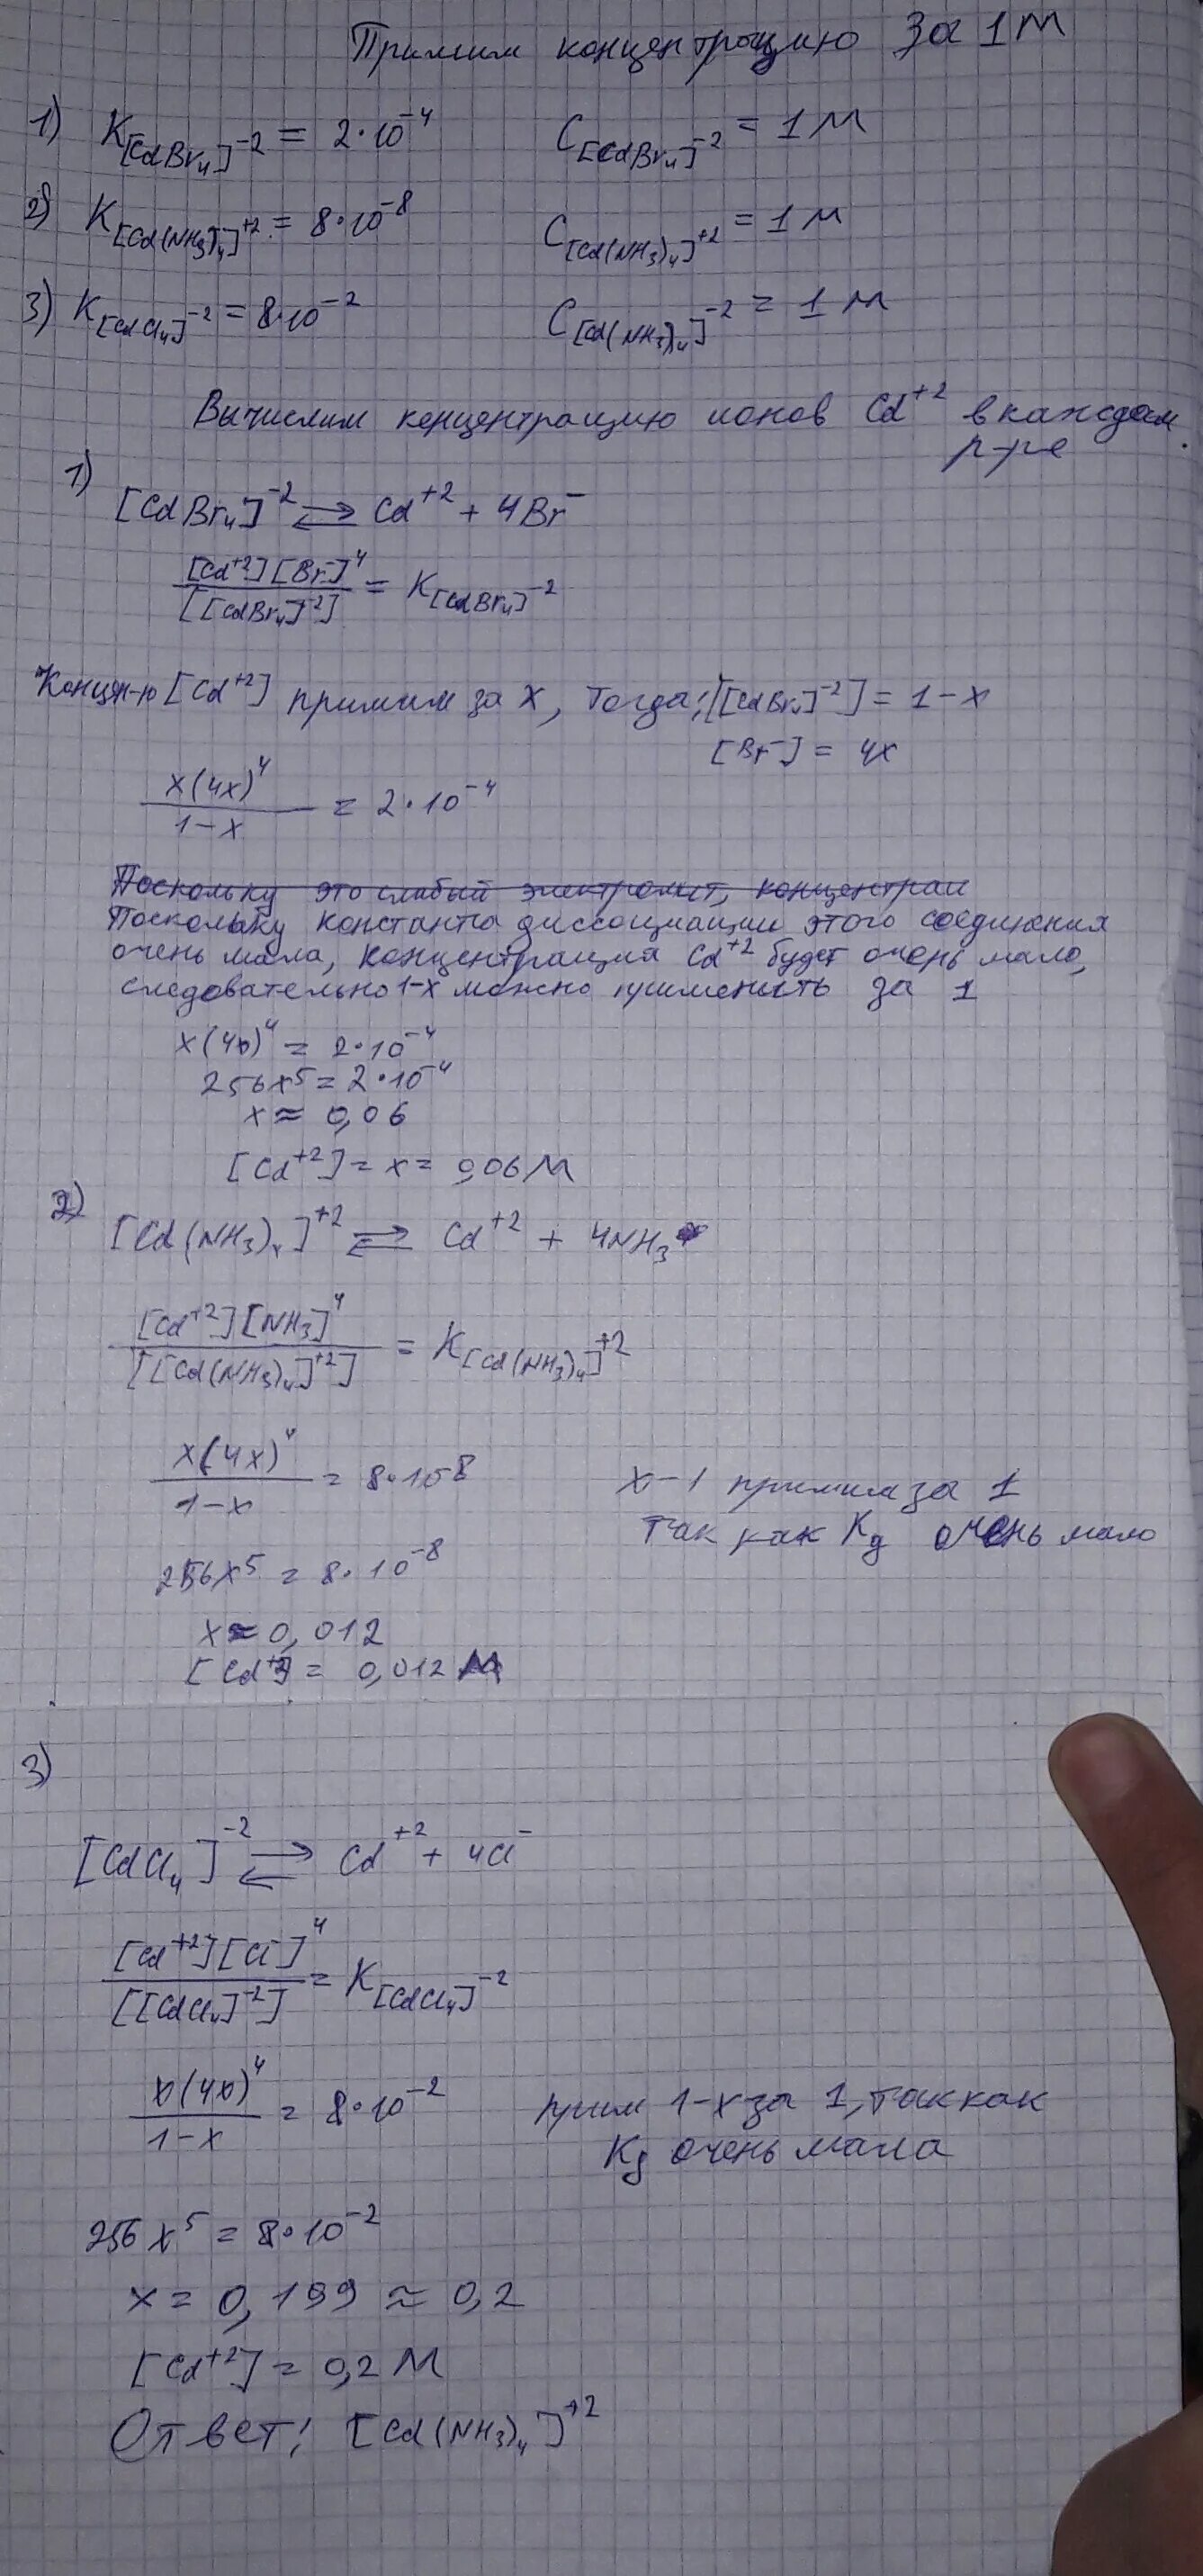 Примим концентрацию за 1 М
1) K[CdBr₄]⁻² = 2·10⁻⁴ C[CdBr₄]⁻² = 1 М
2) K[Cd(NH₃)₄]⁺² = 8·10⁻⁸ C[Cd(NH₃)₄]⁺² = 1 М
3) K[CdCl₄]⁻² = 8·10⁻² C[Cd(NH₃)₄]⁻² = 1 М
Вычислим концентрацию ионов Cd⁺² в каждом
р-ре
1)
[CdBr₄]⁻² ⇄ Cd⁺² + 4Br⁻
[Cd⁺²][Br⁻]⁴ / [[CdBr₄]⁻²] = K[CdBr₄]⁻²
Концен-ю [Cd⁺²] примим за x, тогда: [[CdBr₄]⁻²] = 1-x
[Br⁻] = 4x
x(4x)⁴ / 1-x = 2·10⁻⁴
Поскольку это слабый электролит, концентрац
Поскольку константа диссоциации этого соединения
очень мала, концентрация Cd⁺² будет очень мало,
следовательно 1-x можно применить за 1
x(4x)⁴ = 2·10⁻⁴
256x⁵ = 2·10⁻⁴
x ≈ 0,06
[Cd⁺²] = x = 0,06 М
2)
[Cd(NH₃)₄]⁺² ⇄ Cd⁺² + 4NH₃
[Cd⁺²][NH₃]⁴ / [[Cd(NH₃)₄]⁺²] = K[Cd(NH₃)₄]⁺²
x(4x)⁴ / 1-x = 8·10⁻⁸ x-1 примим за 1
так как Kд очень мало
256x⁵ = 8·10⁻⁸
x ≈ 0,012
[Cd⁺²] = 0,012 М
3)
[CdCl₄]⁻² ⇄ Cd⁺² + 4Cl⁻
[Cd⁺²][Cl⁻]⁴ / [[CdCl₄]⁻²] = K[CdCl₄]⁻²
x(4x)⁴ / 1-x = 8·10⁻² прим 1-x за 1, так как
Kд очень мала
256x⁵ = 8·10⁻²
x = 0,199 ≈ 0,2
[Cd⁺²] = 0,2 М
Ответ: [Cd(NH₃)₄]⁺²